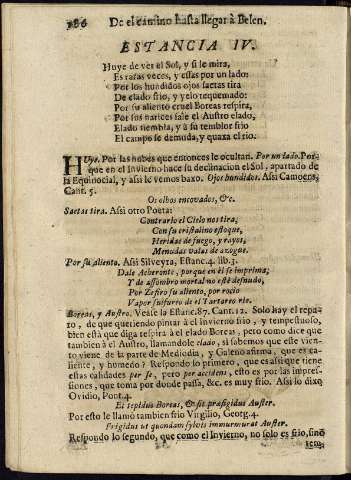 186 De el camino hasta llegar à Belen.
ESTANCIA IV.
Huye de ver al Sol, y si le mira,
Es raras veces, y essas por un lado:
Por los hundidos ojos saetas tira
De elado frio, y yelo requemado:
Por su aliento cruel Boreas respira,
Por sus narices sale el Austro elado,
Elado tiembla, y à su temblor frio
El campo se demuda, y quaxa el rio.
Huye. Por las nubes que entonces le ocultan. Por un lado. Por-
que en el Invierno hace su declinacion el Sol, apartado de
la Equinocial, y assi le vemos baxo. Ojos hundidos. Assi Camoens,
Cant. 5.
Os olhos encovados, &c.
Saetas tira. Assi otro Poeta:
Contrarlo el Cielo nos tira,
Con su cristalino estoque,
Heridas de fuego, y rayos,
Menudas valas de azogue.
Por su aliento. Assi Silveyra, Estanc. 4. lib. 3.
Dale Acheronte, porque en èl se imprima;
Y de assombro mortal no estè desnudo,
Por Zefiro su aliento, por rocio
Vapor sulfureo de el Tartareo rio.
Boreas, y Austro. Vease la Estanc. 87. Cant. 12. Solo hay el repa-
ro, de que queriendo pintar à el Invierno frio, y tempestuoso,
bien està que diga respira à el elado Boreas, pero como dice que
tambien à el Austro, llamandole elado, si sabemos que este vien-
to viene de la parte de Mediodia, y Galeno afirma, que es ca-
liente, y humedo? Respondo lo primero, que es assi que tiene
estas calidades per se, pero per accidens, esto es por las impres-
siones, que toma por donde passa, &c. es muy frio. Assi lo dixo
Ovidio, Pont. 4.
Et tepidus Boreas, & sit præfrigidus Auster.
Por esto le llamò tambien frio Virgilio, Georg. 4.
Frigidus ut quondam sylvis immurmurat Auster.
Respondo lo segundo, que como el Invierno, no solo es frio, sino